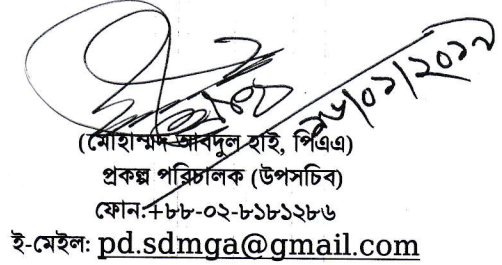 ২৮/০১/২০১৯
(মোহাম্মদ আবদুল হাই, পিএএ)
প্রকল্প পরিচালক (উপসচিব)
ফোন:+৮৮-০২-৮১৮১২৮৬
ই-মেইল: pd.sdmga@gmail.com